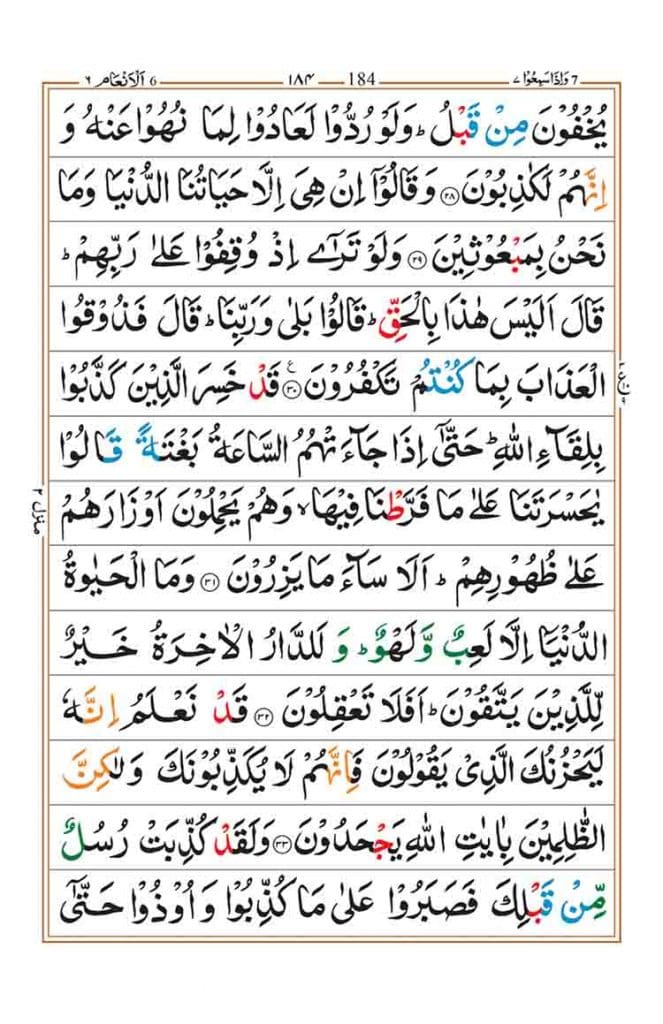 7 وَاِذَاسَمِعُوْا ۷ 184 ۱۸۴ 6 اَلْاَنْعَام ۶
يُخْفُوْنَ مِنْ قَبْلُ ؕ وَلَوْ رُدُّوْا لَعَادُوْا لِمَا نُهُوْا عَنْهُ وَ
اِنَّهُمْ لَكٰذِبُوْنَ ۝۲۸ وَقَالُوْۤا اِنْ هِىَ اِلَّا حَيَاتُنَا الدُّنْيَا وَمَا
نَحْنُ بِمَبْعُوْثِيْنَ ۝۲۹ وَلَوْ تَرٰٓى اِذْ وُقِفُوْا عَلٰى رَبِّهِمْ ؕ
قَالَ اَلَيْسَ هٰذَا بِالْحَقِّ ؕ قَالُوْا بَلٰى وَرَبِّنَا ؕ قَالَ فَذُوْقُوا
الْعَذَابَ بِمَا كُنْتُمْ تَكْفُرُوْنَ ۝۳۰ ع قَدْ خَسِرَ الَّذِيْنَ كَذَّبُوْا
بِلِقَآءِ اللّٰهِ ؕ حَتّٰۤى اِذَا جَآءَتْهُمُ السَّاعَةُ بَغْتَةً قَالُوْا
يٰحَسْرَتَنَا عَلٰى مَا فَرَّطْنَا فِيْهَا ۙ وَهُمْ يَحْمِلُوْنَ اَوْزَارَهُمْ
منزل ۲
عَلٰى ظُهُوْرِهِمْ ؕ اَلَا سَآءَ مَا يَزِرُوْنَ ۝۳۱ وَمَا الْحَيٰوةُ
الدُّنْيَاۤ اِلَّا لَعِبٌ وَّلَهْوٌ ؕ وَ لَلدَّارُ الْاٰخِرَةُ خَيْرٌ
لِّلَّذِيْنَ يَتَّقُوْنَ ؕ اَفَلَا تَعْقِلُوْنَ ۝۳۲ قَدْ نَعْلَمُ اِنَّهٗ
لَيَحْزُنُكَ الَّذِىْ يَقُوْلُوْنَ فَاِنَّهُمْ لَا يُكَذِّبُوْنَكَ وَلٰكِنَّ
الظّٰلِمِيْنَ بِاٰيٰتِ اللّٰهِ يَجْحَدُوْنَ ۝۳۳ وَلَقَدْ كُذِّبَتْ رُسُلٌ
مِّنْ قَبْلِكَ فَصَبَرُوْا عَلٰى مَا كُذِّبُوْا وَاُوْذُوْا حَتّٰۤى